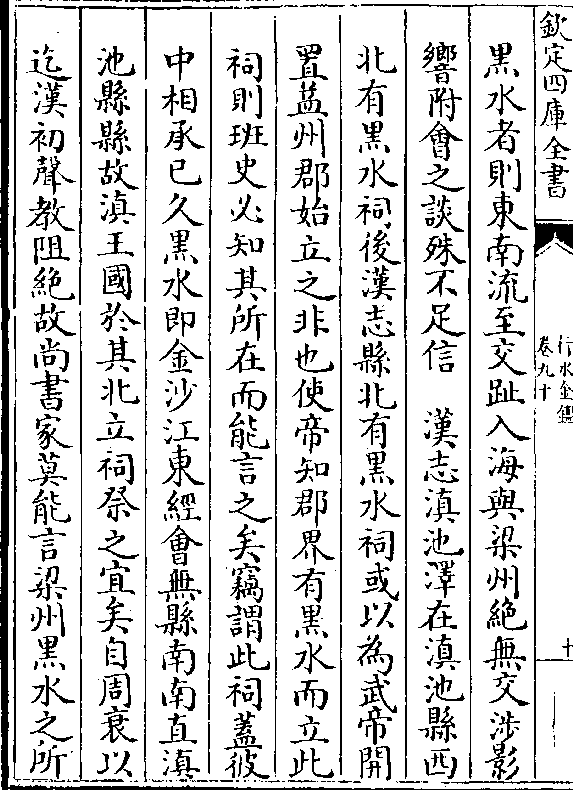 欽定四庫全書
行水金鑑
卷九十
十
黑水者則東南流至交趾入海與梁州絶無交涉影
響附會之談殊不足信　漢志滇池澤在滇池縣西
北有黑水祠後漢志縣北有黑水祠或以為武帝開
置益州郡始立之非也使帝知郡界有黑水而立此
祠則班史必知其所在而能言之矣竊謂此祠蓋彼
中相承已久黑水即金沙江東經會無縣南南直滇
池縣縣故滇王國於其北立祠祭之宜矣自周衰以
迄漢初聲教阻絶故尚書家莫能言梁州黑水之所